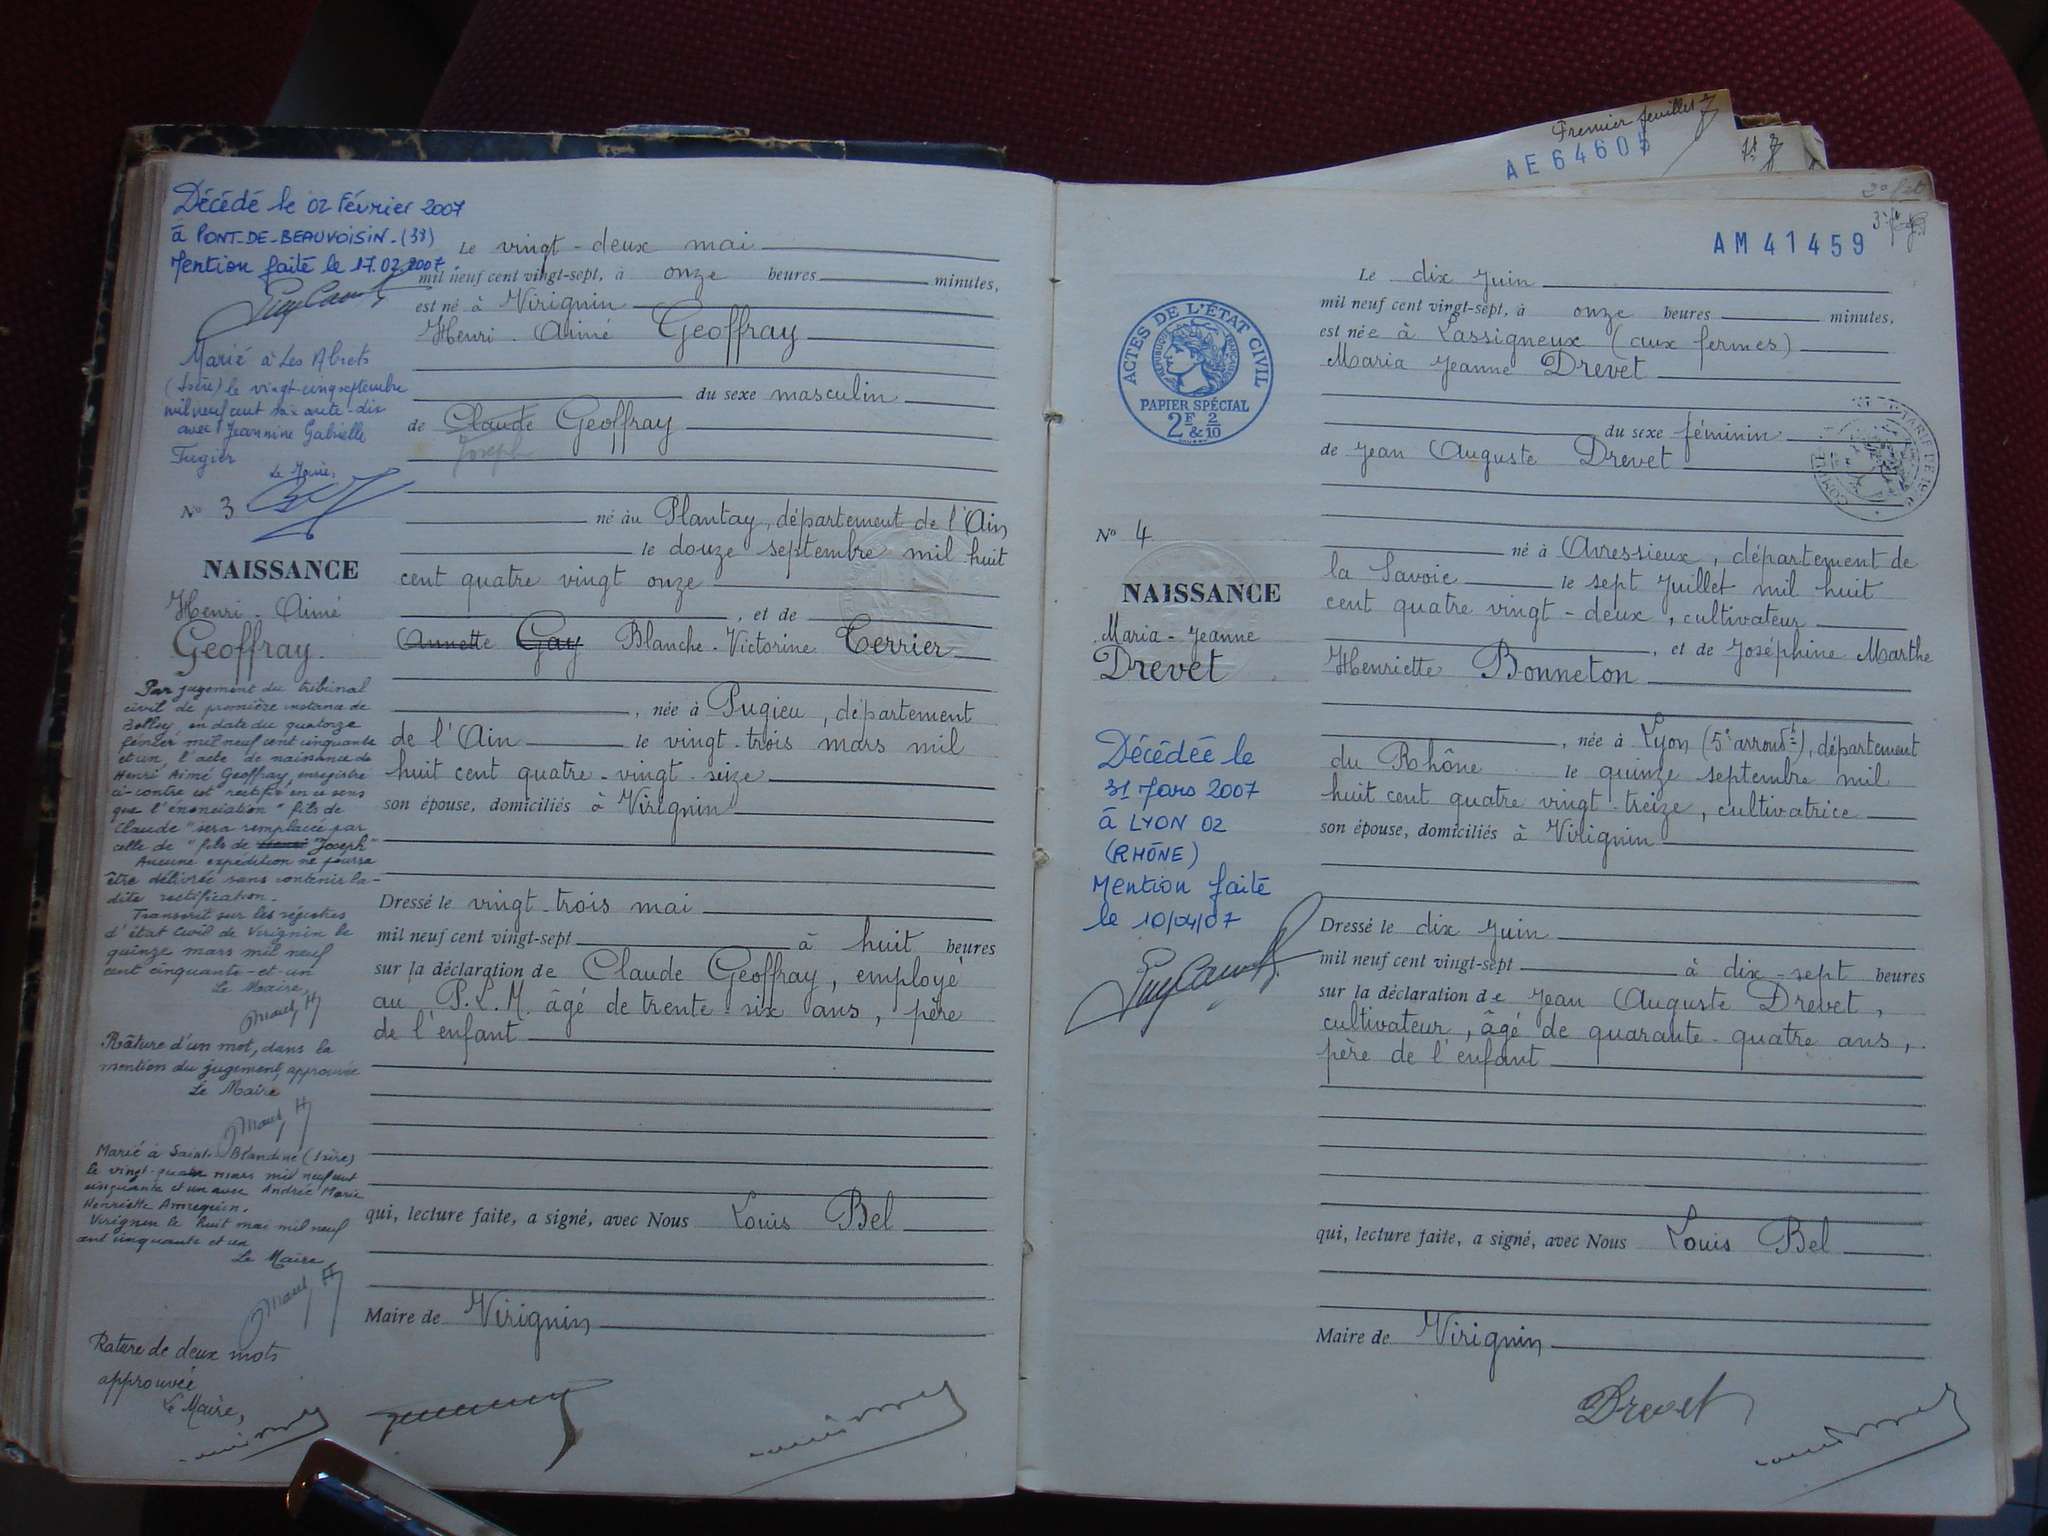 Décédé le 02 Février 2007
à PONT-DE-BEAUVOISIN-(38)
Mention faite le 17.02.2007
Marié à Les Abrets
(Isère) le vingt-cinq septembre
mil neuf cent soixante-dix
avec Jeannine Gabrielle
Fugier
Le Maire,
N° 3
NAISSANCE
Henri-Aimé
Geoffray
Par jugement du tribunal
civil de première instance de
Belley, en date du quatorze
février mil neuf cent cinquante
et un, l'acte de naissance de
Henri Aimé Geoffray, enregistré
ci-contre est rectifié en ce sens
que l'énonciation "fils de
Claude" sera remplacée par
celle de "fils de Henri Joseph"
Aucune expédition ne pourra
être délivrée sans contenir la-
dite rectification.
Transcrit sur les registres
d'état civil de Virignin le
quinze mars mil neuf
cent cinquante-et-un
Le Maire,
Râture d'un mot, dans la
mention du jugement, approuvée
Le Maire
Marié à Saint-Blandine (Isère)
le vingt-quatre mars mil neuf cent
cinquante et un avec Andrée Marie
Henriette
Virignin le huit mai mil neuf
cent cinquante et un
Le Maire
Rature de deux mots
approuvée
Le Maire,
Le vingt-deux mai
mil neuf cent vingt-sept, à onze heures minutes,
est né à Virignin
Henri-Aimé Geoffray
du sexe masculin
de Claude Geoffray
Joseph
né au Plantay, département de l'Ain
le douze septembre mil huit
cent quatre vingt onze
, et de
Annette Gay Blanche-Victorine Terrier
, née à Pugieu, département
de l'Ain le vingt-trois mars mil
huit cent quatre-vingt-seize
son épouse, domiciliés à Virignin
Dressé le vingt-trois mai
mil neuf cent vingt-sept à huit heures
sur la déclaration de Claude Geoffray, employé
au P.L.M. âgé de trente-six ans, père
de l'enfant
qui, lecture faite, a signé, avec Nous Louis Bel
Maire de Virignin
Premier feuillet
AE64605
3e
AM41459
ACTES DE L'ÉTAT CIVIL
RÉPUBLIQUE FRANÇAISE
PAPIER SPÉCIAL
2F & 2/10
N° 4
NAISSANCE
Maria-Jeanne
Drevet
Décédée le
31 Mars 2007
à LYON 02
(RHÔNE)
Mention faite
le 10/04/07
Le dix Juin
mil neuf cent vingt-sept, à onze heures minutes,
est née à Lassigneux (aux fermes)
Maria Jeanne Drevet
du sexe féminin
de Jean Auguste Drevet
né à Avressieux, département de
la Savoie le sept Juillet mil huit
cent quatre vingt-deux, cultivateur
, et de Joséphine Marthe
Henriette Bonneton
, née à Lyon (5e arrondt), département
du Rhône le quinze septembre mil
huit cent quatre vingt-treize, cultivatrice
son épouse, domiciliés à Virignin
Dressé le dix Juin
mil neuf cent vingt-sept à dix-sept heures
sur la déclaration de Jean Auguste Drevet,
cultivateur, âgé de quarante-quatre ans,
père de l'enfant
qui, lecture faite, a signé, avec Nous Louis Bel
Maire de Virignin
Drevet